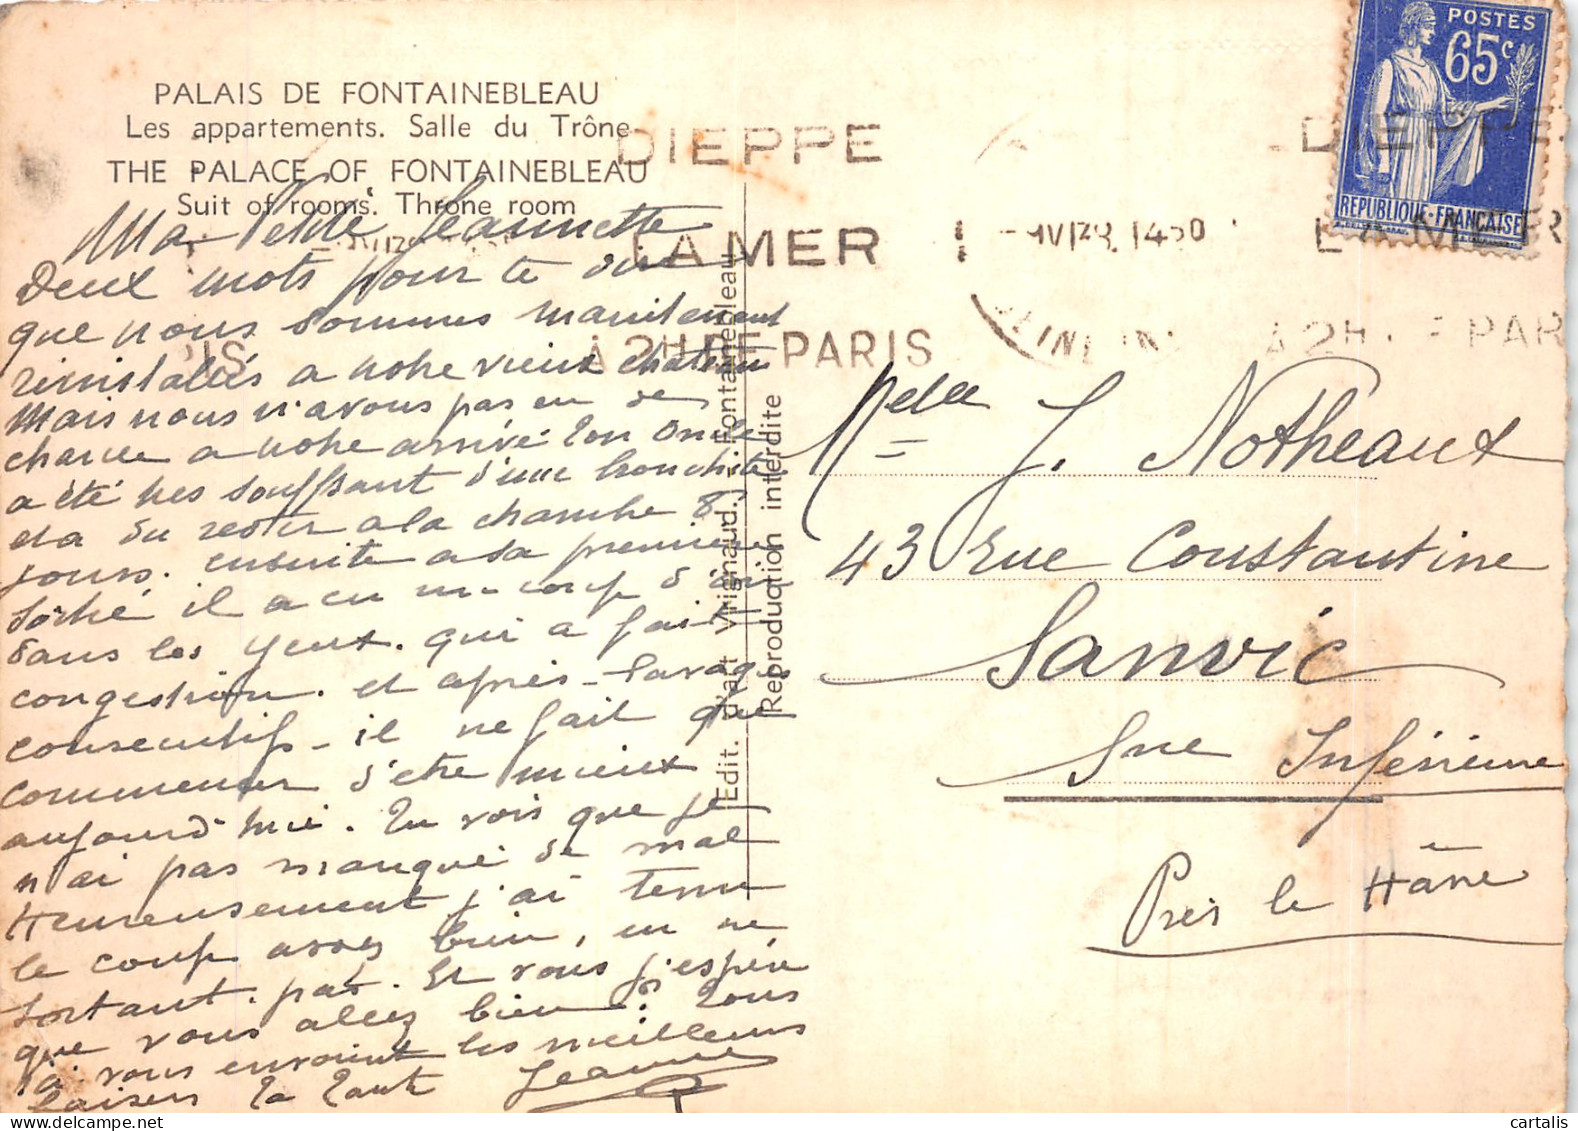 PALAIS DE FONTAINEBLEAU
Les appartements. Salle du Trône
THE PALACE OF FONTAINEBLEAU
Suit of rooms. Throne room
Ma Petite Jeannette
Deux mots pour te dire
que nous sommes maintenant
réinstallés a notre vieux chateau
Mais nous n'avons pas eu de
chance a notre arrivé. Ton Oncle
a été très souffrant d'une bronchite
et a du rester a la chambre 8
jours. ensuite a sa première
sortie il a eu un coup d'air
dans les yeux. qui a fait
congestion. et après lavages
consecutifs il ne fait que
commencer d'etre mieux
aujourd'hui. Tu vois que je
n'ai pas manqué de mal
Heureusement j'ai tenu
le coup assez bien, en ne
sortant pas. Et vous j'espère
que vous allez bien. Tous
vous envoient les meilleurs
baisers Ta Tante Jeanne
Edit. d'art Vrignaud. - Fontainebleau
Reproduction interdite
POSTES
65c
REPUBLIQUE-FRANÇAISE
DIEPPE
LA MER
A 2H DE PARIS
DIEPPE
LA MER
A 2H DE PARIS
Melle J. Notheaux
43 rue Constantine
Sanvic
Sne Inférieure
Près le Hâvre
cartalis